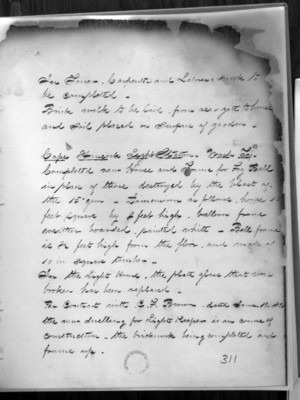 Carpenter and Laborers work to
be completed -
Brick walk to be laid from rear gate to house
and Soil placed on Surface of garden -
Light Station -
Completed new House and Frame for Fog Bell
in place of those destroyed by the blast of
the 15" gun - Dimensions as follows, house 10
feet square by 8 feet high, balloon frame
weather boarded, painted white - Bell frame
is 14 feet high from the floor, and made of
10 in square timber -
For the Light House, the plate glass that were
broken has been replaced -
Per Contract with
the new dwelling for Light Keeper is in course of
construction - the brickwork being completed and
frame up.
311